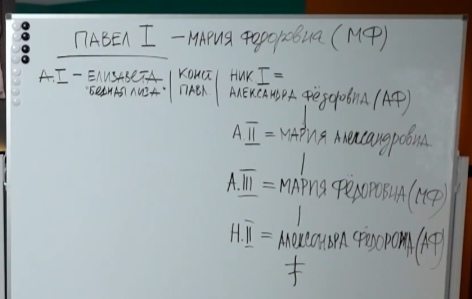 ПАВЕЛ I – МАРИЯ ФЁДОРОВНА (МФ)
А.I – ЕЛИЗАВЕТА | КОНСТ | НИК I =
"БЕДНАЯ ЛИЗА" | ПАВЛ | АЛЕКСАНДРА ФЁДОРОВНА (АФ)
А II = МАРИЯ АЛЕКСАНДРОВНА
А.III = МАРИЯ ФЁДОРОВНА (МФ)
Н.II = АЛЕКСАНДРА ФЁДОРОВНА (АФ)